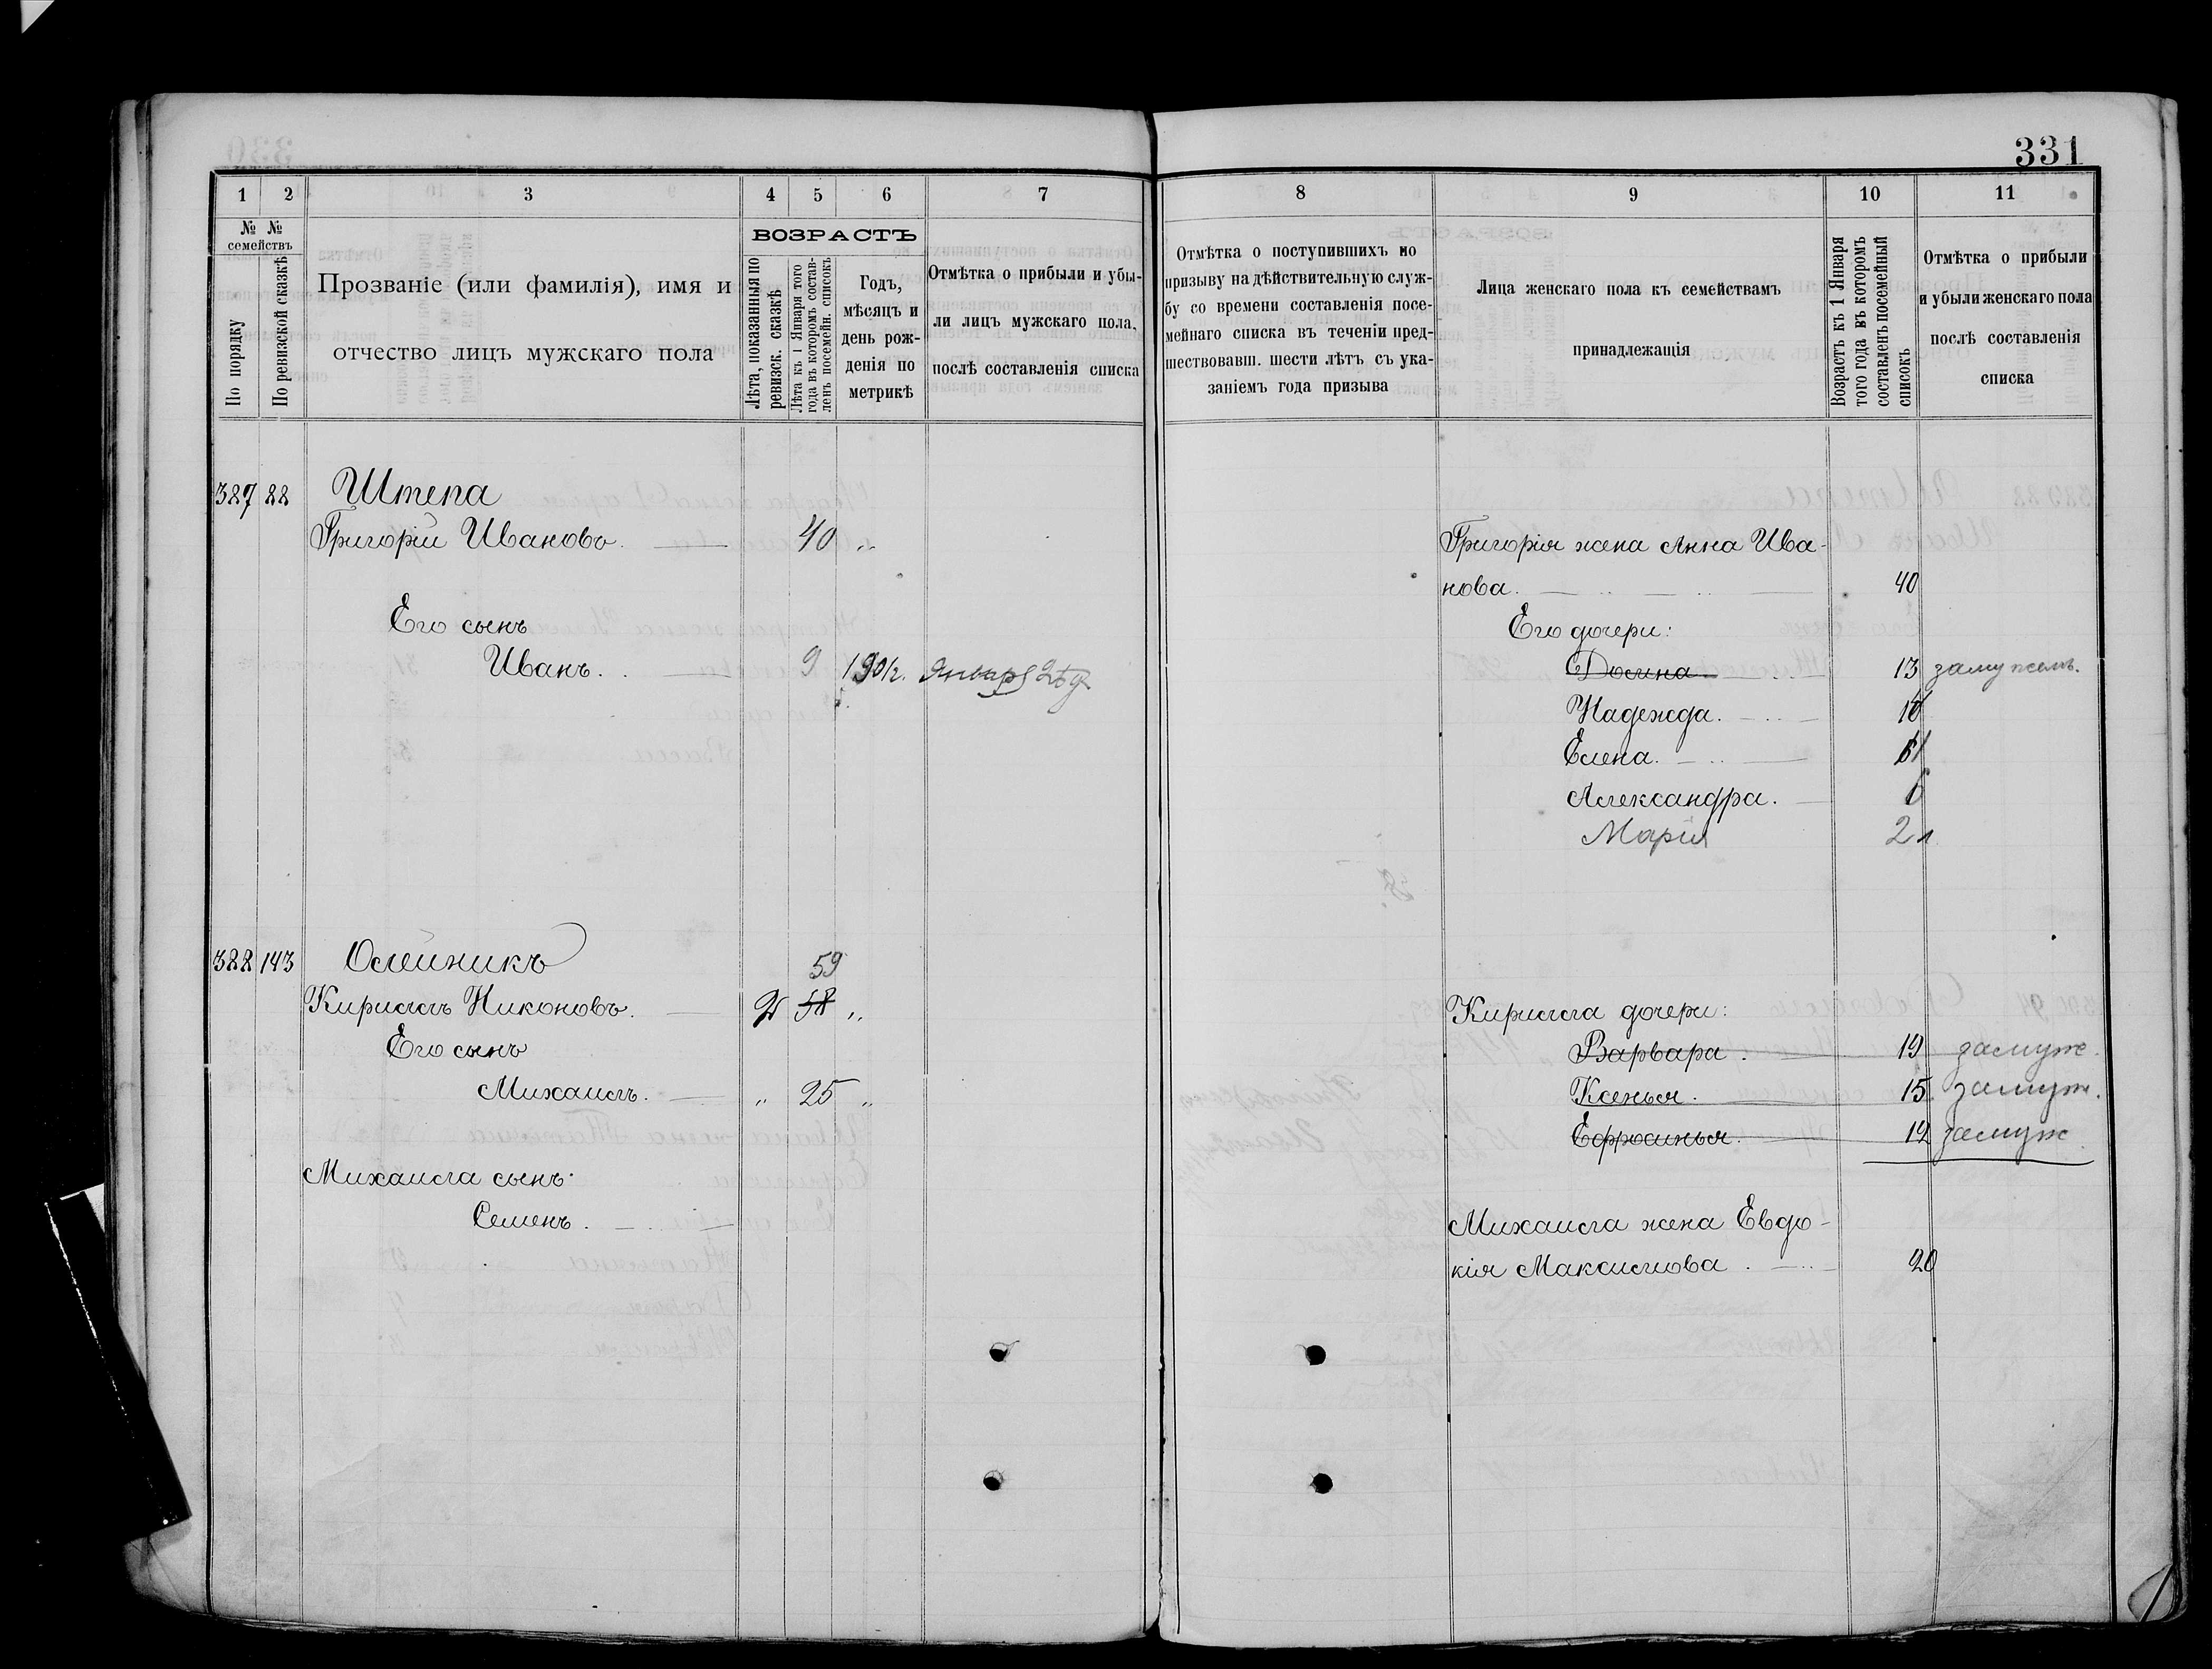 331
1 2 3 4 5 6 7
№ № семействъ
По порядку
По ревизской сказкѣ
Прозваніе (или фамилія), имя и
отчество лицъ мужскаго пола
ВОЗРАСТЪ
Лѣта, показанныя по
ревизск. сказкѣ
Лѣта къ 1 Января того
года въ которомъ состав-
ленъ посемейн. списокъ
Годъ,
мѣсяцъ и
день рож-
денія по
метрикѣ
Отмѣтка о прибыли и убы-
ли лицъ мужскаго пола,
послѣ составленія списка
387 88 Штепа
Григорій Ивановъ. 40 „
Его сынъ
Иванъ. 9 1901г. Января 25 д.
388 143 Олейникъ 59
Кириллъ Никоновъ. 58 „
Его сынъ
Михаилъ. „ 25 „
Михаила сынъ:
Семенъ.
8 9 10 11
Отмѣтка о поступившихъ по
призыву на дѣйствительную служ-
бу со времени составленія посе-
мейнаго списка въ теченіи пред-
шествовавш. шести лѣтъ съ ука-
заніемъ года призыва
Лица женскаго пола къ семействамъ
принадлежащія
Возрастъ къ 1 Января
того года въ которомъ
составленъ посемейный
списокъ
Отмѣтка о прибыли
и убыли женскаго пола
послѣ составленія
списка
Григорія жена Анна Ива-
нова. 40
Его дочери:
Домна 13 замужемъ.
Надежда.
Елена.
Александра. 6
Марія 2
Кирилла дочери:
Варвара. 19 замуже.
Ксенья. 15 замуж.
Ефросинья. 12 замуж
Михаила жена Евдо-
кія Максимова. 20